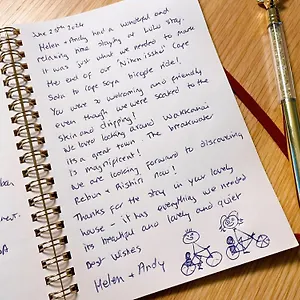 June 20th 2024
Helen + Andy had a wonderful and
relaxing time staying at Lulu stay.
It was just what we needed to mark
the end of our 'Nihon isshu' Cape
Sata to Cape Soya bicycle ride!
You were so welcoming and friendly
even though we were soaked to the
skin and dripping!
We loved looking around Wakkanai
its a great town. The breakwater
is magnificent!
We are looking forward to discovering
Rebun + Rishiri now!
Thanks for the stay in your lovely
house - it has everything we needed
its beautiful and lovely and quiet
Best wishes
Helen + Andy